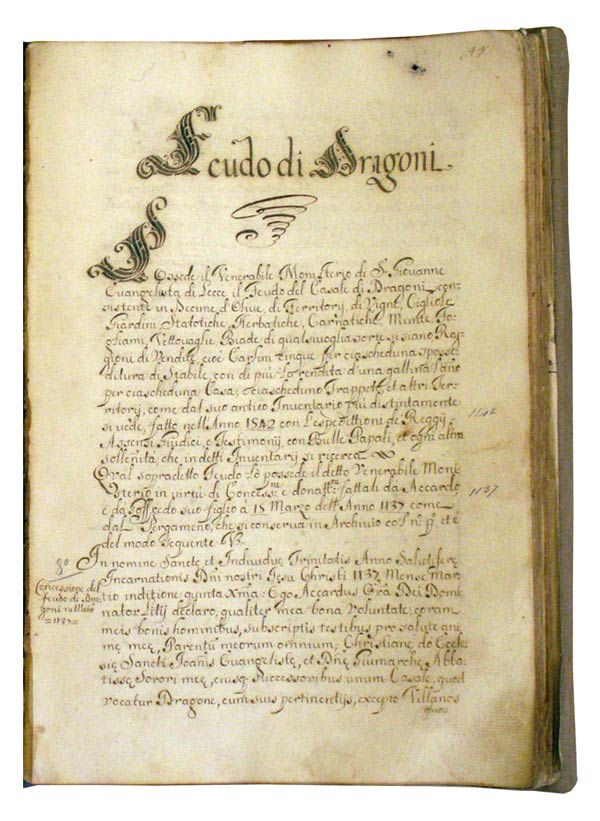 49
Feudo di Dragoni.
Possede il Venerabile Monisterio di S. Giovanne
Euangelista di Lecce, il Feudo del Casale di Dragoni, con-
sistente in Decime d'Oliue, di Territorij, di Vigne, Cigliole
Giardini Statotiche, Herbatiche, Carnatiche, Mente, Fo-
gliami, Vettouaglie, Biade di qualsiuoglia sorte si siano, Rag-
gioni di Vendite, cioè Carlini cinque per ciascheduna
ditura di Stabile, con di più la rendita d'una gallina l'año
per ciascheduna Casa, e ciascheduno Trappeto, et altri Ter-
ritorij, come dal suo antico Inuentario più distintamente
si vede, fatto nell'Anno 1542 con l'espeditioni de Reggij
Assensi, Giudici, e Testimonij, con Bulle Papali, et ogni altra
sollenità, che in detti Inuentarij si ricerca
1542
Qual sopradetto Feudo lo possede il detto Venerabile Moni-
sterio in virtù di Concess.ne e donat.ne fattali da Accardo
e da Goffredo suo figlio à 15 Marzo dell'Anno 1137 come
dal Pergameno, che si conserua in Archiuio col n.º p.º et è
del modo seguente V3.
1137
8º
Concessione del
feudo di Dra-
goni nell'año
=1137=
In nomine Sancte et Indiuidue Trinitatis Anno Salutifere
Incarnationis Dñi nostri Jesu Christi 1137 Mense Mar-
tio inditione quinta Xma: Ego Accardus Grã Dei Domi-
nator Litij declaro, qualiter mea bona voluntate, coram
meis bonis hominibus, subscriptis testibus pro salute ani-
me mee, Parentũ meorum omnium, Christiane do Eccle-
sie Sancti Joanis Euangeliste, et Dñe Guimarche Abba-
tisse Sorori mee, eiusq. Successoribus unum Casale, quod
vocatur Dragone, cum suis pertinentijs, excepto Villanos
quos